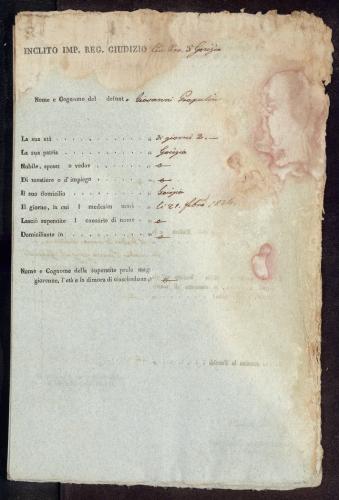 INCLITO IMP. REG. GIUDIZIO Civ. Prov. di Gorizia
Nome e Cognome del defunto Giovanni
La sua età di giorni 2.
La sua patria Gorizia
Nubile, sposo o vedov e
Di mestiere o d'impiego e
Il suo domicilio Gorizia
Il giorno, in cui l medesim morì li 21. febro. 1824.
Lasciò superstite l consorte di nome e
Domiciliante in e
Nome e Cognome della superstite prole mag-
giorenne, l'età e la dimora di ciascheduno e